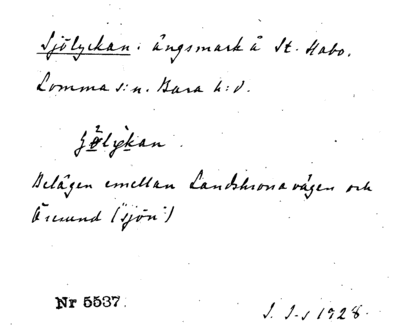 Sjölyckan: ängsmark å St. Habo.
Lomma s:n. Bara h:d.
lykan.
Belägen emellan Landskronavägen och
Öresund ("sjön")
Nr 5537.
1928.